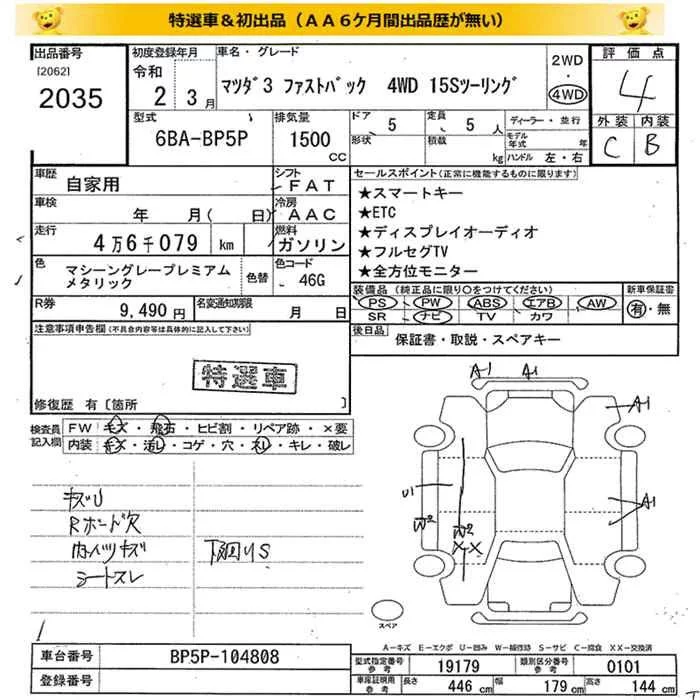 特選車＆初出品（ＡＡ６ケ月間出品歴が無い）
出品番号
[2062]
2035
初度登録年月
令和
2 3月
車名・グレード
マツダ３ ファストバック 4WD 15Sツーリング
2WD
・
4WD
評価点
4
外装 内装
C B
型式
6BA-BP5P
排気量
1500
CC
ドア 5
形状
定員 5 人
積載 kg
ディーラー・並行
モデル年式 年
ハンドル 左・右
車歴 自家用
シフト FAT
車検 年 月( 日)
冷房 AAC
走行 4万6千079 km
燃料 ガソリン
色 マシーングレープレミアムメタリック
色替
色コード 46G
R券 9,490円
名変通知期限 月 日
セールスポイント(正常に機能するものに限り)
★スマートキー
★ETC
★ディスプレイオーディオ
★フルセグTV
★全方位モニター
装備品（純正品に限り○をつけてください）
PS PW ABS エアB AW
SR ナビ TV カワ
新車保証書
有・無
後日品 保証書・取説・スペアキー
注意事項申告欄(不具合内容等は具体的に記入して下さい)
特選車
修復歴 有〔箇所 〕
検査員記入欄
FW キズ・飛石・ヒビ割・リペア跡・×要
内装 キズ・汚レ・コゲ・穴・スレ・キレ・破レ
キズU
Rボード穴
内ハリキズ
シートスレ
下回りS
A1 A1
A1
A1
U1
W2
W2
XX
スペア
A－キズ E－エクボ U－凹み W－補修跡 S－サビ C－腐食 XX－交換済
車台番号 BP5P-104808
登録番号
型式指定番号 参考 19179
類別区分番号 参考 0101
車庫証明用 参考 長さ 446 cm 幅 179 cm 高さ 144 cm